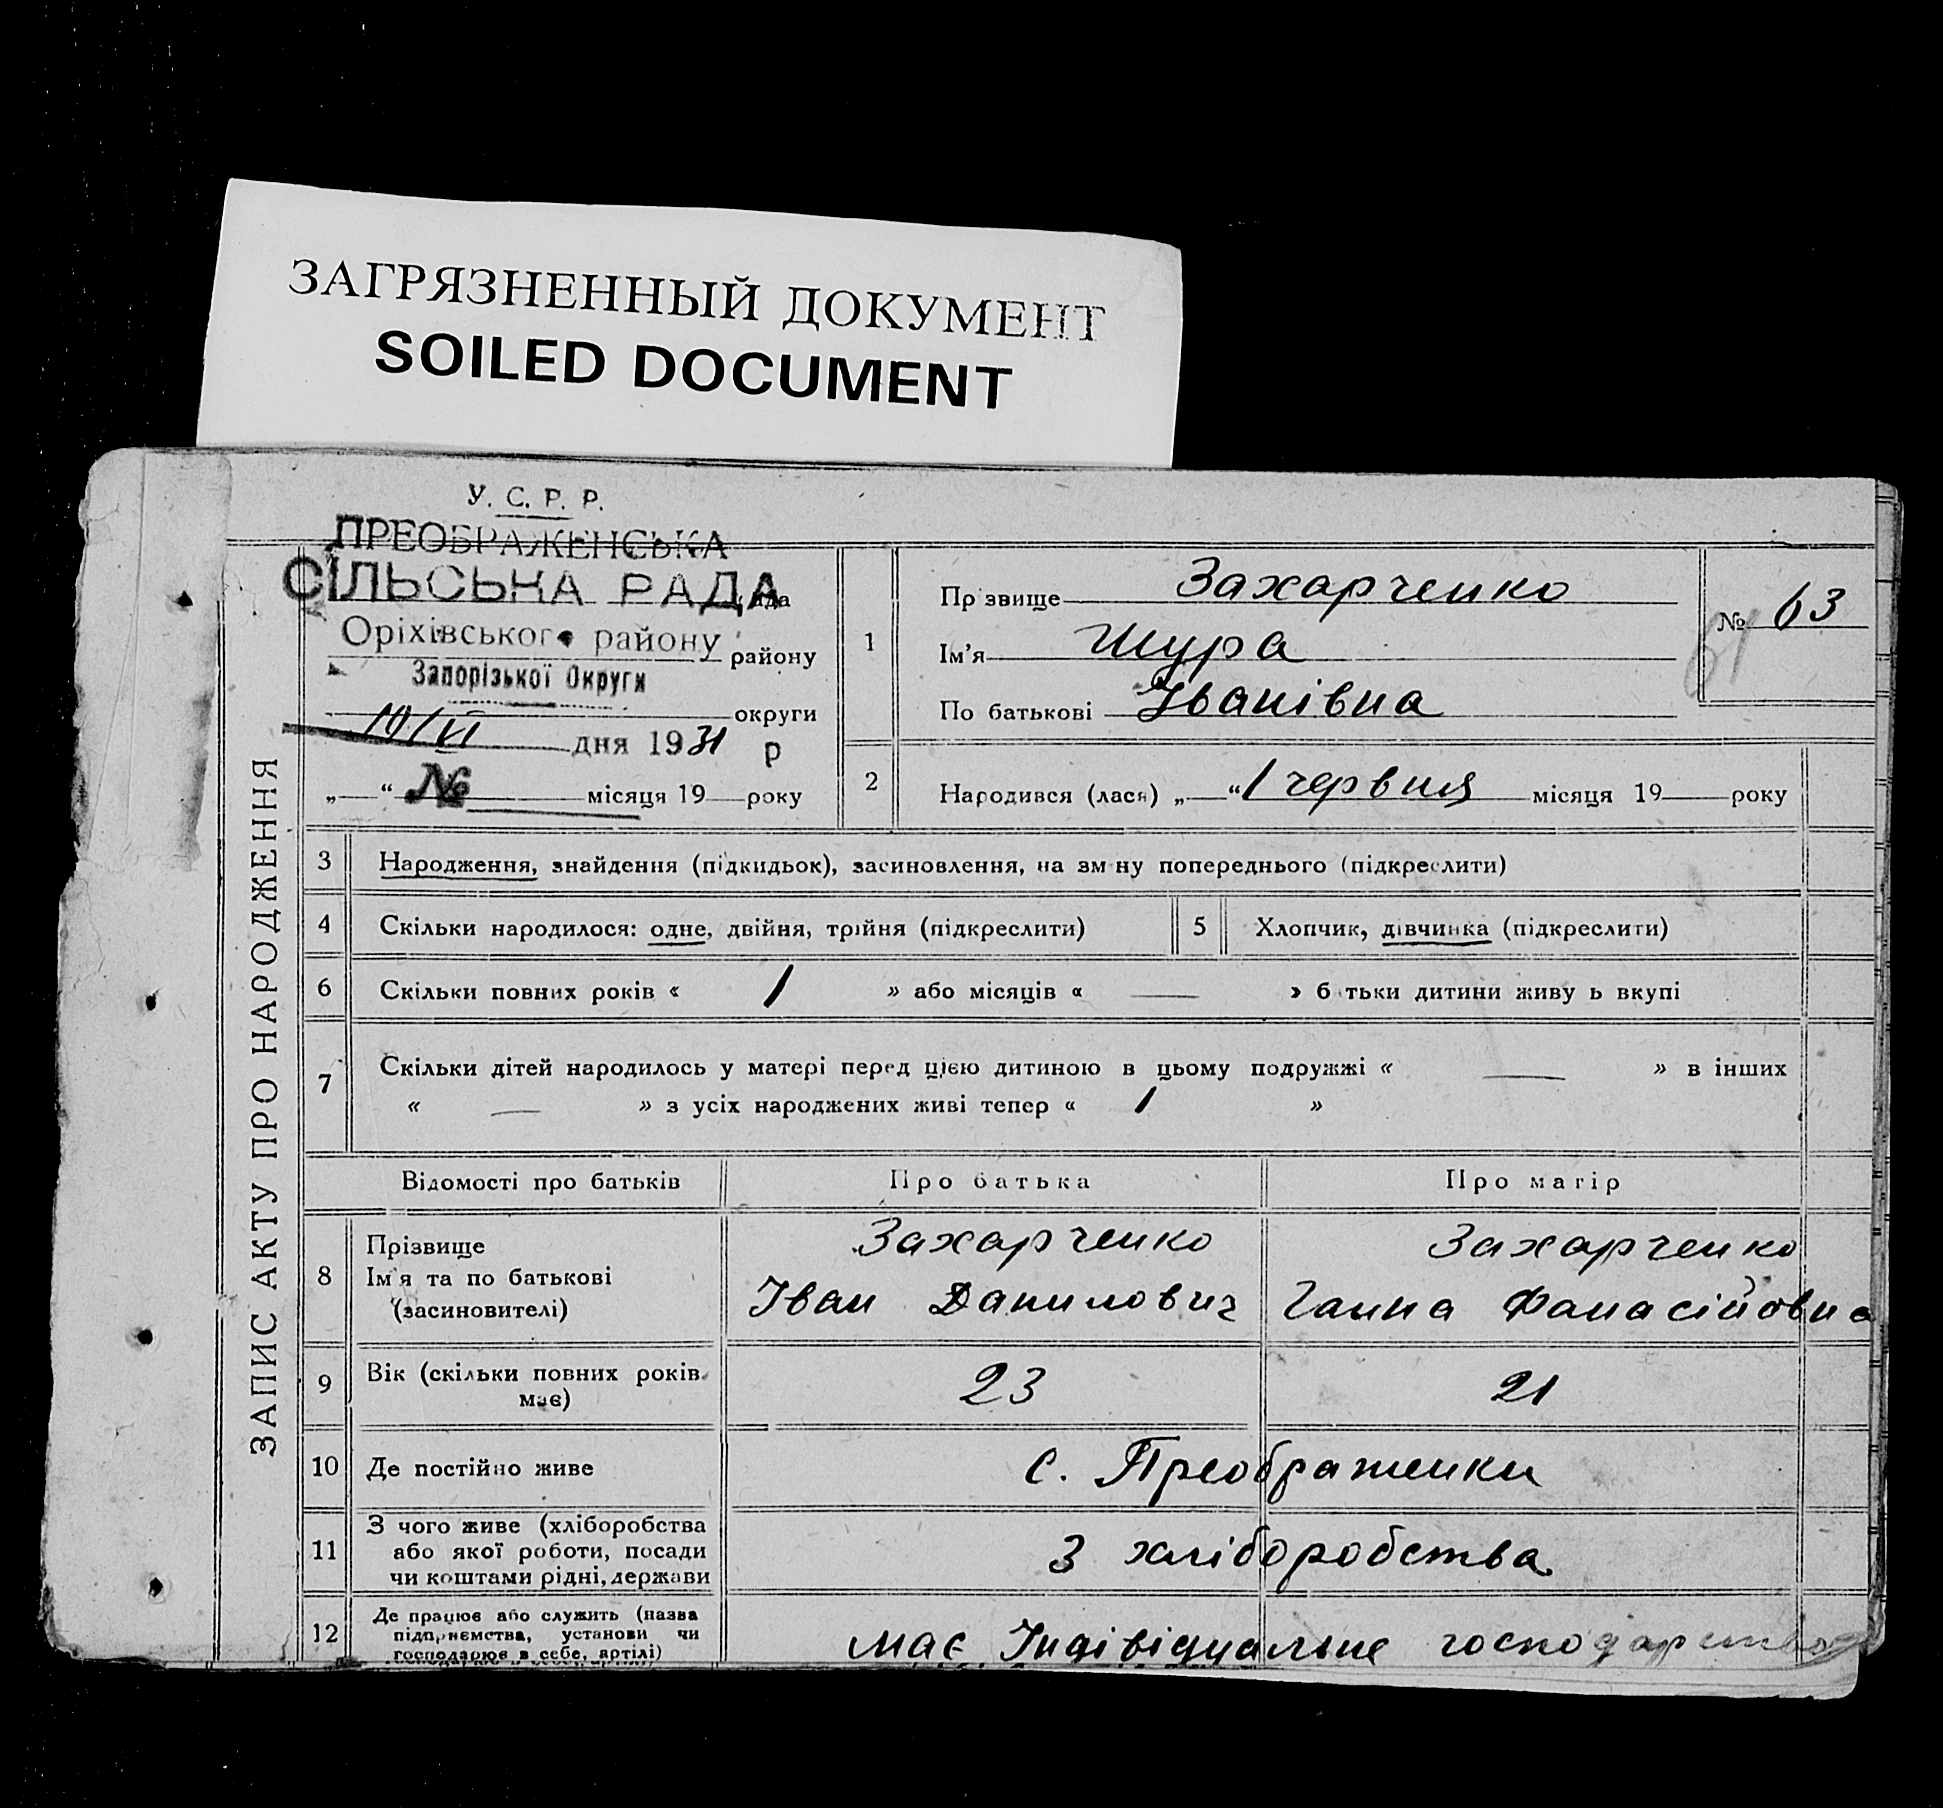 ЗАГРЯЗНЕННЫЙ ДОКУМЕНТ
SOILED DOCUMENT
У. С. Р. Р.
ПРЕОБРАЖЕНСЬКА
СІЛЬСЬКА РАДА
Оріхівського району району
Запорізької Округи
округи
19/VI дня 1931 р
„ “ № місяця 19 року
ЗАПИС АКТУ ПРО НАРОДЖЕННЯ
1
Пр звище Захарченко
Ім’я Шура
По батькові Іванівна
№ 63
61
2 Народився (лася) „ “ 1 червня місяця 19 року
3 Народження, знайдення (підкидьок), засиновлення, на зм ну попереднього (підкреслити)
4 Скільки народилося: одне, двійня, трійня (підкреслити) 5 Хлопчик, дівчинка (підкреслити)
6 Скільки повних років « 1 » або місяців « — » б тьки дитини живу ь вкупі
7 Скільки дітей народилось у матері перед цією дитиною в цьому подружжі « — » в інших
« — » з усіх народжених живі тепер « 1 »
Відомості про батьків Про батька Про матір
8 Прізвище Захарченко Захарченко
Ім’я та по батькові Іван Данилович Ганна Фанасійовна
(засиновителі)
9 Вік (скільки повних років має) 23 21
10 Де постійно живе с. Преображенки
11 З чого живе (хліборобства
або якої роботи, посади З хліборобства
чи коштами рідні, держави
12 Де працює або служить (назва
підприємства, установи чи має Індівідуальне господарство
господарює в себе, артілі)